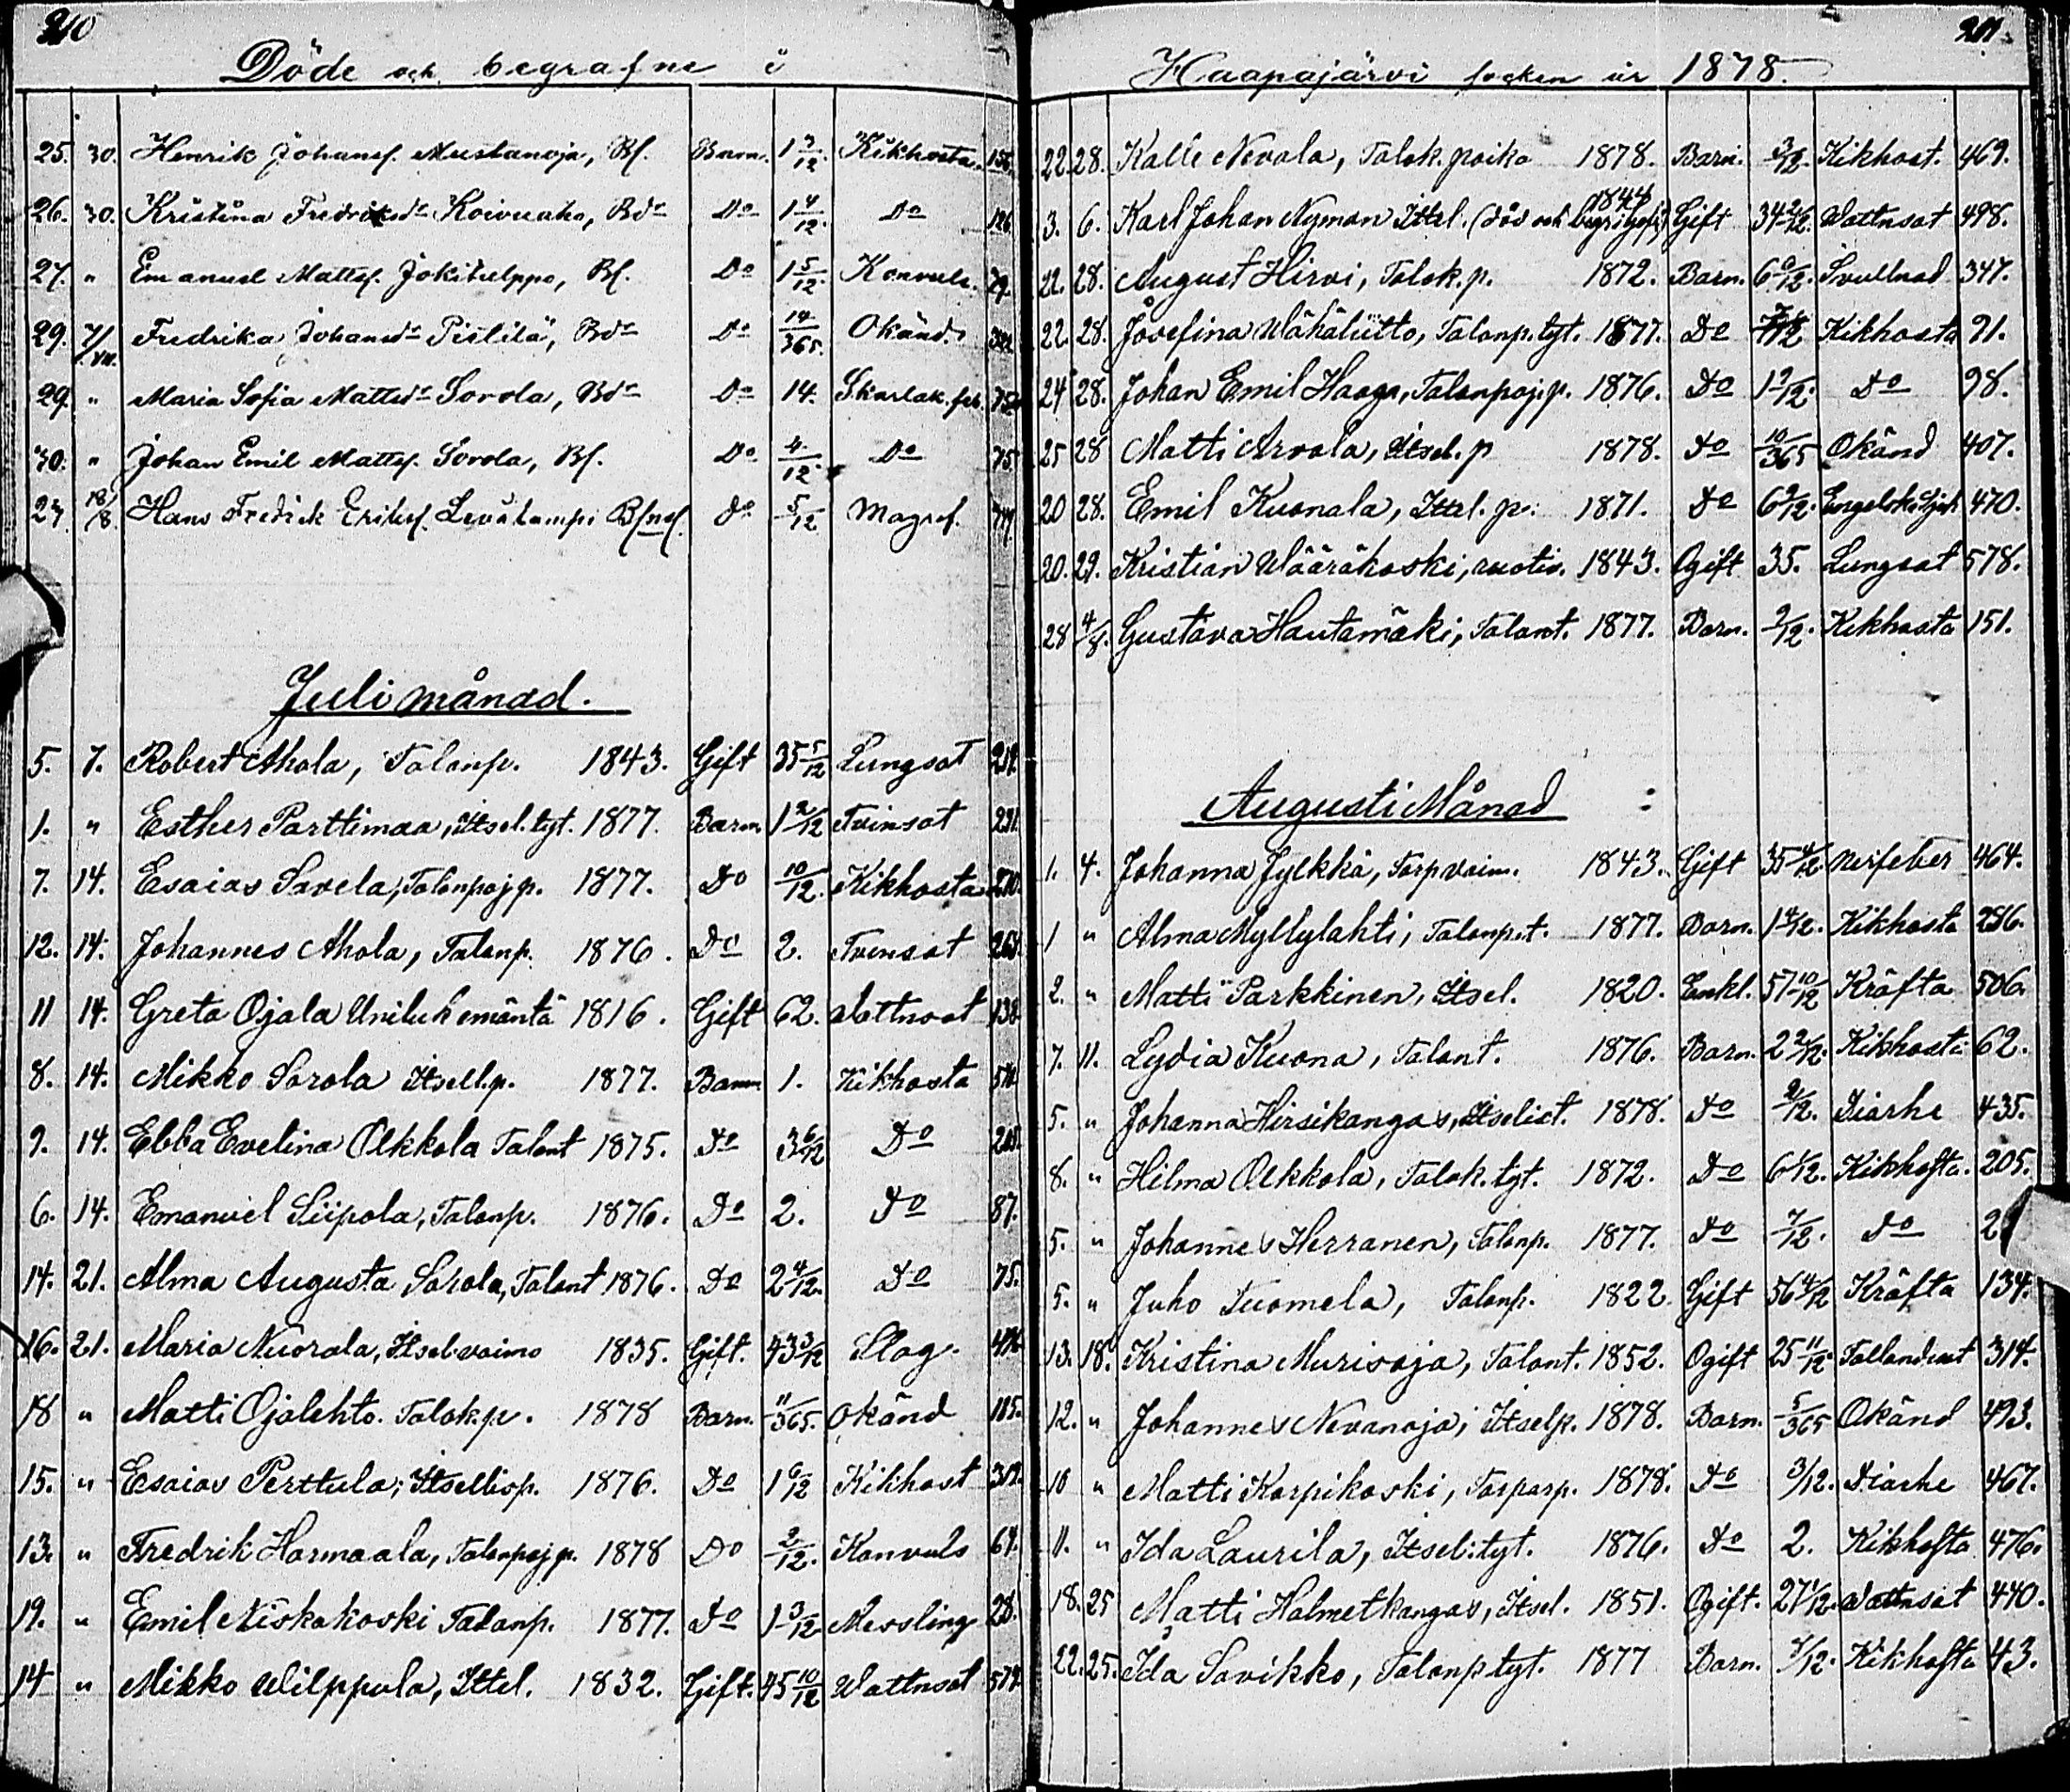 210
Döde och begrafne i
25. 30. Henrik Johansf. Mustanoja, Bf. Barn. 1 7/12 Kikhosta
26. 30. Kristina Fredriksdr Koivuaho, Bdr Do 1 4/12 Do 126
27. " Emanuel Mattsf. Jokihelppo, Bf. Do 1 5/12 Konvuls. 79.
29. 7/VII. Fredrika Johansdr Pistilä, Bdr Do 14/365. Okänd.
29. " Maria Sofia Mattsdr Sorola, Bdr Do 14. Skarlak. feb. 75
30. " Johan Emil Mattsf. Sorola, Bf. Do 4/12. Do 75
27. 18/8. Hans Fredrik Eriksf. Levälampi Do 5/12 Magref.
Juli månad.
5. 7. Robert Ahola, Talonp. 1843. Gift 35 5/12 Lungsot
1. " Esther Parttimaa, Itsel. tyt. 1877. Barn 1 2/12 Tvinsot 231.
7. 14. Esaias Savela, Talonpoj p. 1877. Do 10/12. Kikhosta
12. 14. Johannes Ahola, Talonp. 1876. Do 2. Tvinsot 268.
11 14. Greta Ojala Uniluk emäntä 1816. Gift 62. Wattusot 138
8. 14. Mikko Sorola Itsell.p. 1877. Barn 1. Kikhosta
9. 14. Ebba Evelina Olkkola Talont 1875. Do 3 6/12 Do 205.
6. 14. Emanuel Siipola, Talonp. 1876. Do 2. Do 87.
14. 21. Alma Augusta Sorola, Talont 1876. Do 2 4/12. Do 75.
16. 21. Maria Nuorala, Itsel. vaimo 1835. Gift. 43 3/12 Slag.
18 " Matti Ojalehto. Talok.p. 1878 Barn. 11/365. Okänd 185.
15. " Esaias Perttula, Itsellisp. 1876. Do 1 9/12 Kikhost 319.
13. " Fredrik Harmaala, Talonpoj p. 1878 Do 2/12. Konvuls 67.
19. " Emil Niskakoski Talonp. 1877. Do 1 3/12 Messling 28.
14 " Mikko Wilppola, Ittel. 1832. Gift. 45 10/12 Wattusot
211.
Haapajärvi socken år 1878.
22. 28. Kalle Nevala, Talok. poika 1878. Barn. 3/12 Kikhost. 469.
1844
3. 6. Karl Johan Nyman Ittel. (död och Gift 34 2/12. Wattusot 498.
22. 28. August Hirvi, Talok. p. 1872. Barn. 6 6/12. Svullnad 347.
22. 28. Josefina Wähäliitto, Talonp. tyt. 1877. Do Kikhosta 91.
24 28. Johan Emil Haaga, Talonpoj. p. 1876. Do 1 9/12. Do 98.
25 28 Matti Arvola, Itsel. p 1878. Do 10/365 Okänd 407.
20 28. Emil Kuonala, Ittel. p. 1871. Do 6 9/12. Engelsk. Sjuk 470.
20. 29. Kristian Wääräkoski, ruotiv. 1843. Ogift 35. Lungsot 578.
28 4/8. Gustava Hautamäki, Talont. 1877. Barn. 9/12. Kikhosta 151.
Augusti Månad
1. 4. Johanna Jylkkä, Torp vaim. 1843. Gift 35 4/12. Nerfeber 464.
1 " Alma Myllylahti, Talonp.t. 1877. Barn. 1 4/12. Kikhosta 286.
2. " Matti Parkkinen, Itsel. 1820. Enkl. 57 10/12 Kräfta 506.
7. 11. Lydia Kuona, Talont. 1876. Barn. 2 2/12. Kikhosta 62.
5. " Johanna Hirsikangas, Itselist. 1878. Do 2/12. Diarhe 435.
8. " Hilma Olkkola, Talok. tyt. 1872. Do 6 1/12. Kikhosta. 205.
5. " Johannes Herranen, Talonp. 1877. Do 7/12. Do
5. " Juho Tuomela, Talonp. 1822. Gift 56 4/12 Kräfta 134.
13. 18. Kristina Murisoja, Talont. 1852. Ogift 25 11/12. Fallandesot 314.
12. " Johannes Nevanoja, Itselp. 1878. Barn. 5/365 Okänd 493.
10 " Matti Karpikoski, Torparp. 1878. Do 3/12. Diarhe 467.
11. " Ida Laurila, Itsel: tyt. 1876. Do 2. Kikhosta 476.
18. 25 Matti Halmetkangas, Itsel. 1851. Ogift. 27 1/12. Wattusot 440.
22. 25. Ida Savikko, Talonp tyt. 1877 Barn. 7/12. Kikhosta 43.